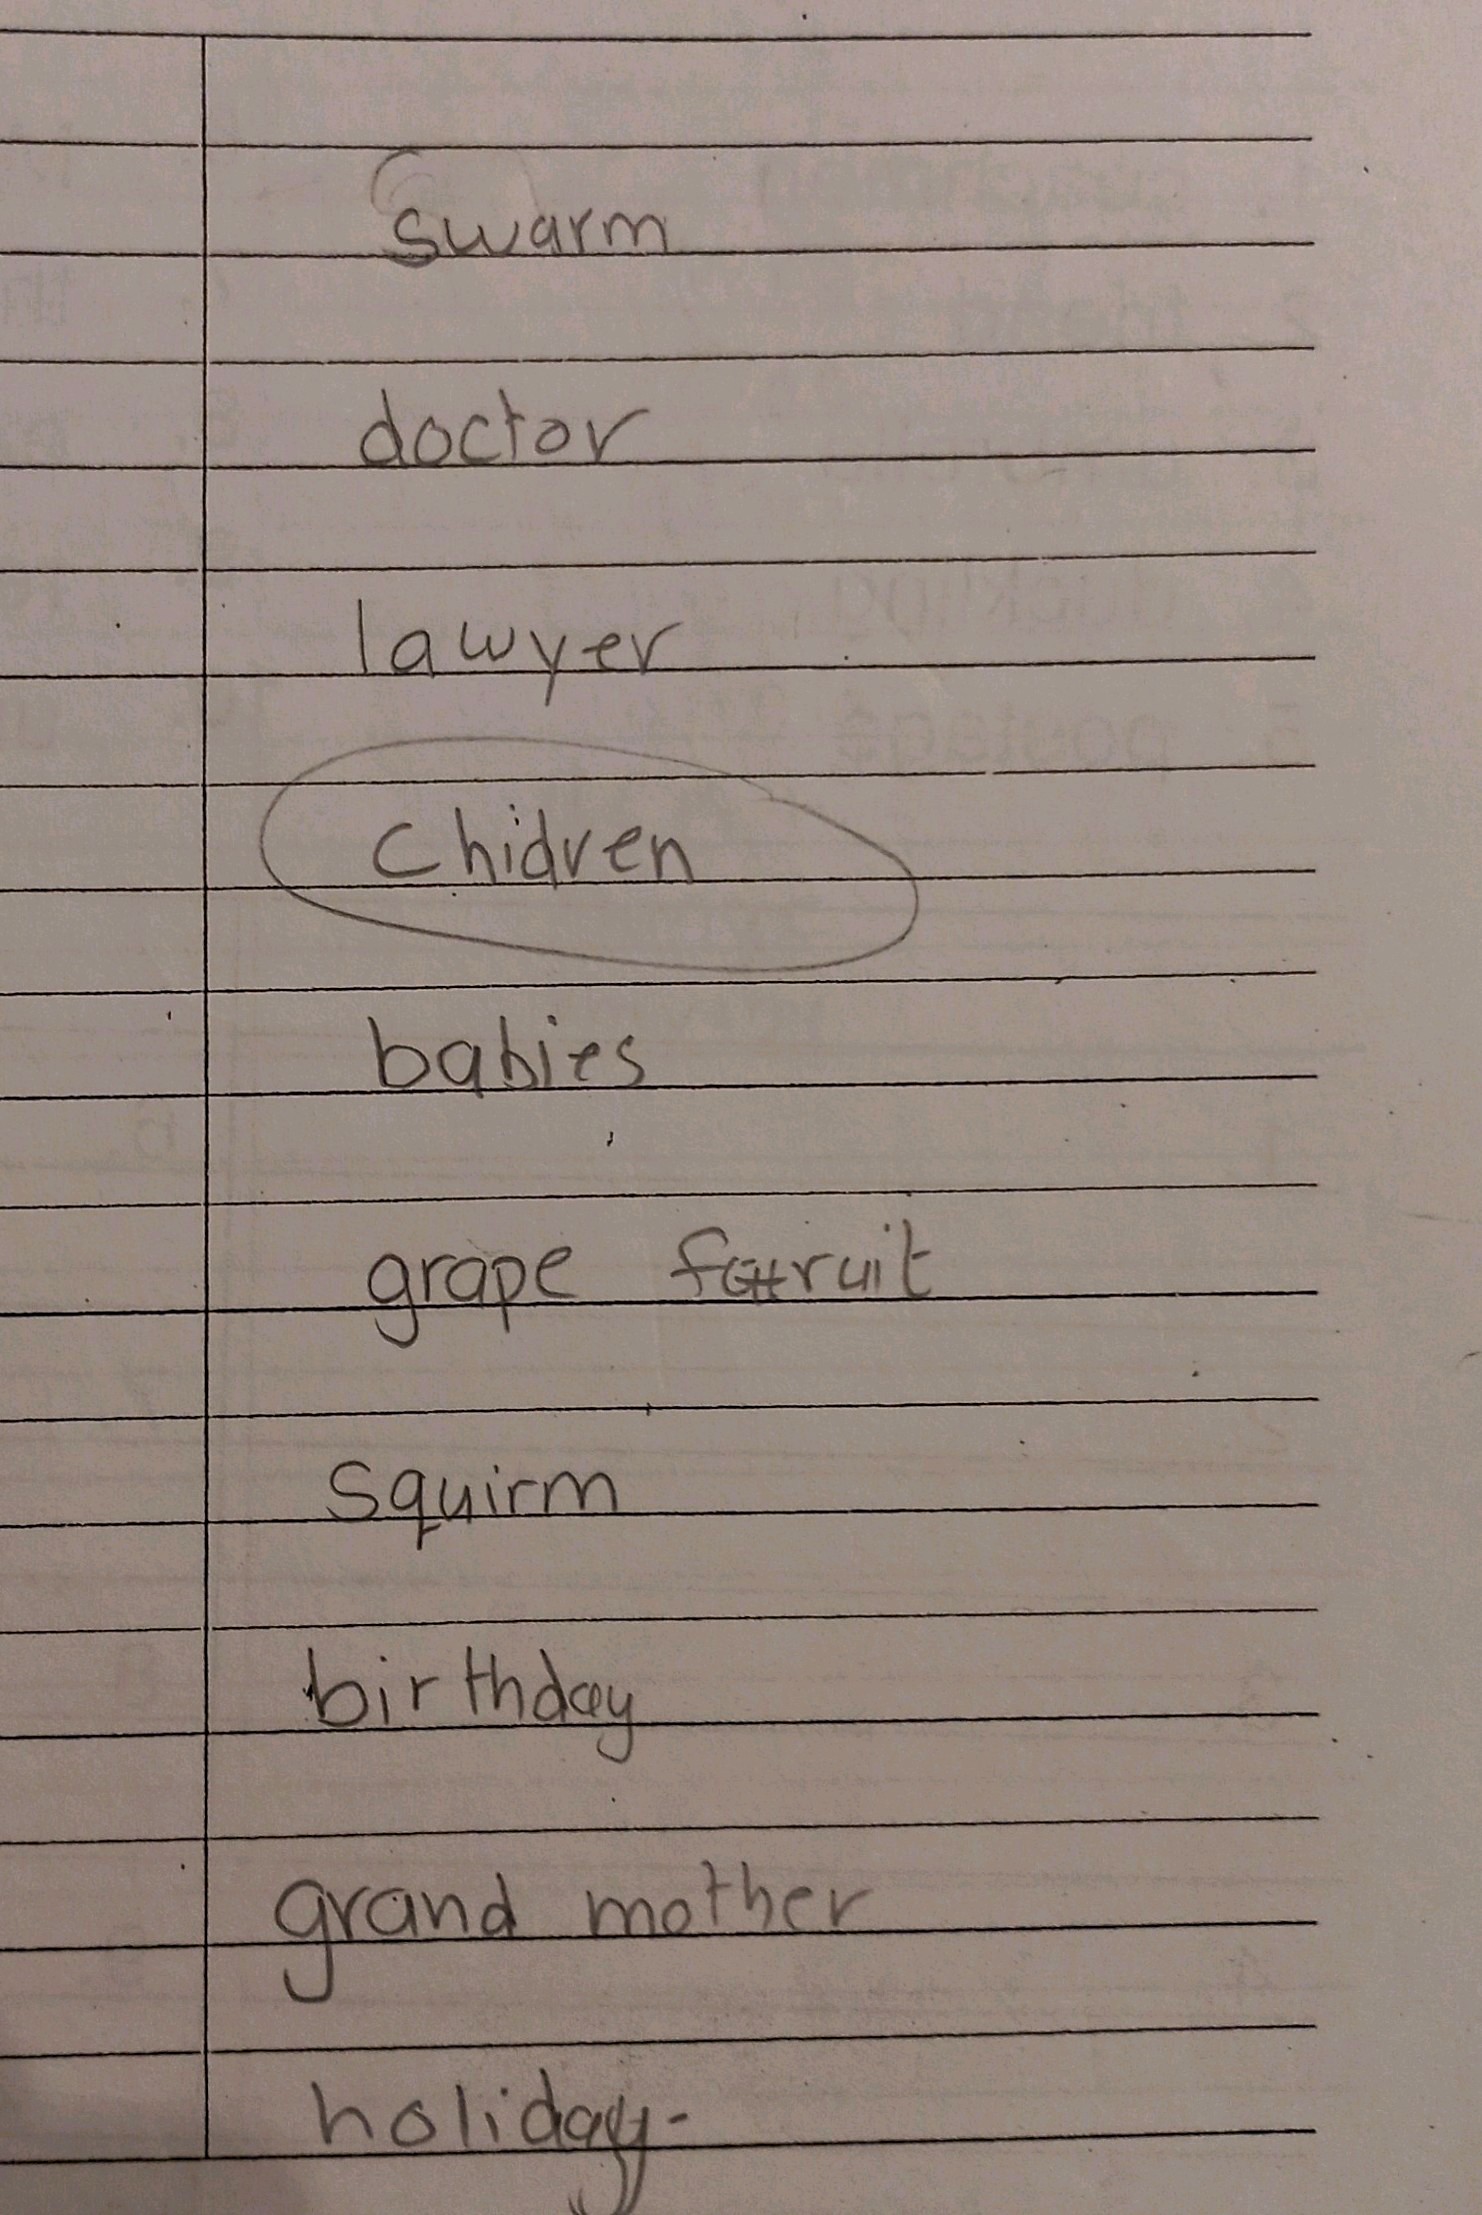 swarm
doctor
lawyer
chidren
babies
grape fruit
squirm
birthday
grand mother
holiday